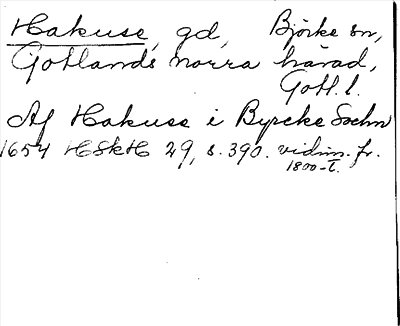 Hakuse, gd, Björke sn,
Gotlands norra härad,
Gotl. l.
Af Hakuse i Byrcke Sochn
1654 HSkH 29, s. 390. vidim. fr.
1800-t.